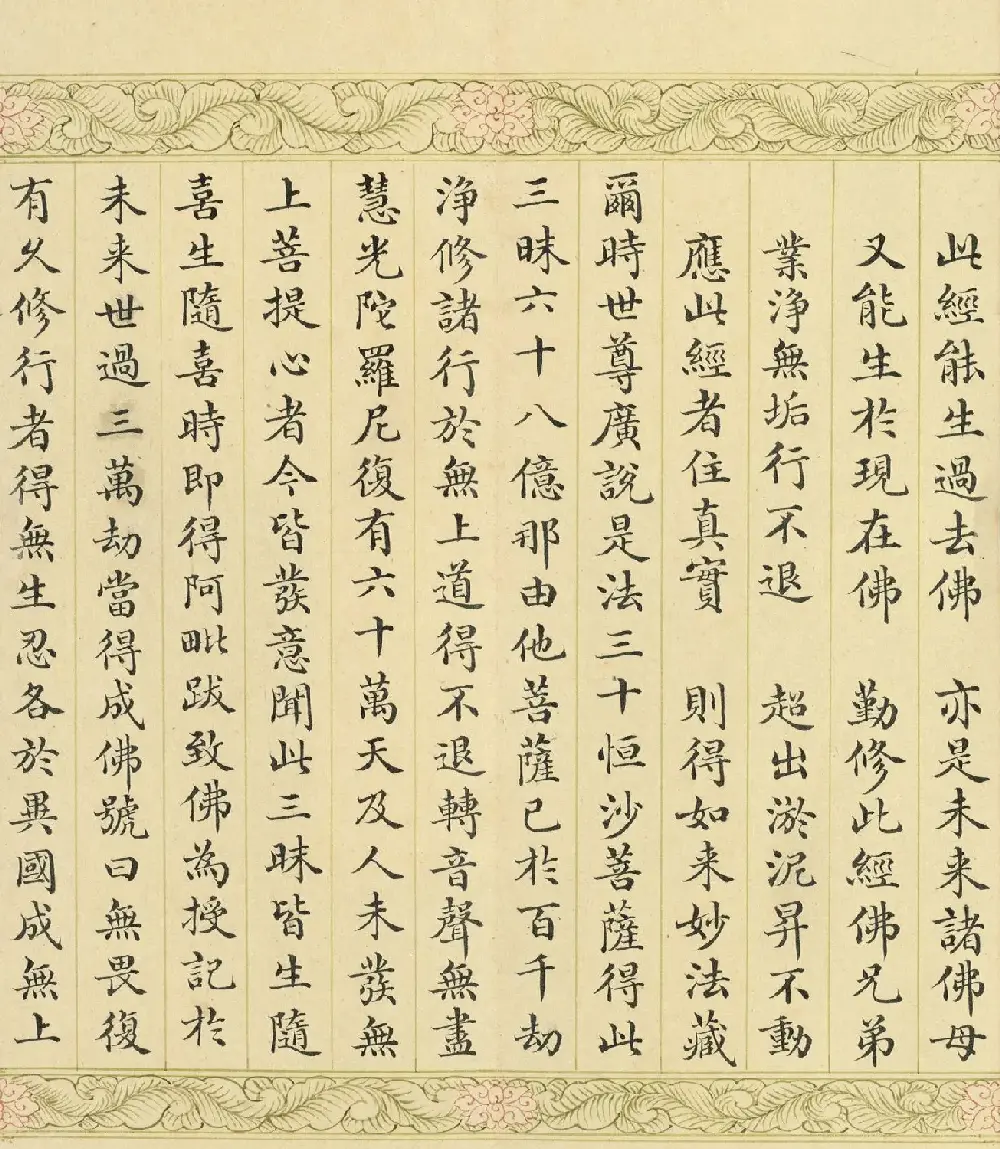 此經能生過去佛　亦是未来諸佛母
又能生於現在佛　勤修此經佛兄弟
業浄無垢行不退　超出淤泥昇不動
應此經者住真實　則得如来妙法藏
爾時世尊廣說是法三十恒沙菩薩得此
三昧六十八億那由他菩薩已於百千劫
浄修諸行於無上道得不退轉音聲無盡
慧光陀羅尼復有六十萬天及人未發無
上菩提心者今皆發意聞此三昧皆生隨
喜生隨喜時即得阿毗跋致佛為授記於
未来世過三萬劫當得成佛號曰無畏復
有久修行者得無生忍各於異國成無上